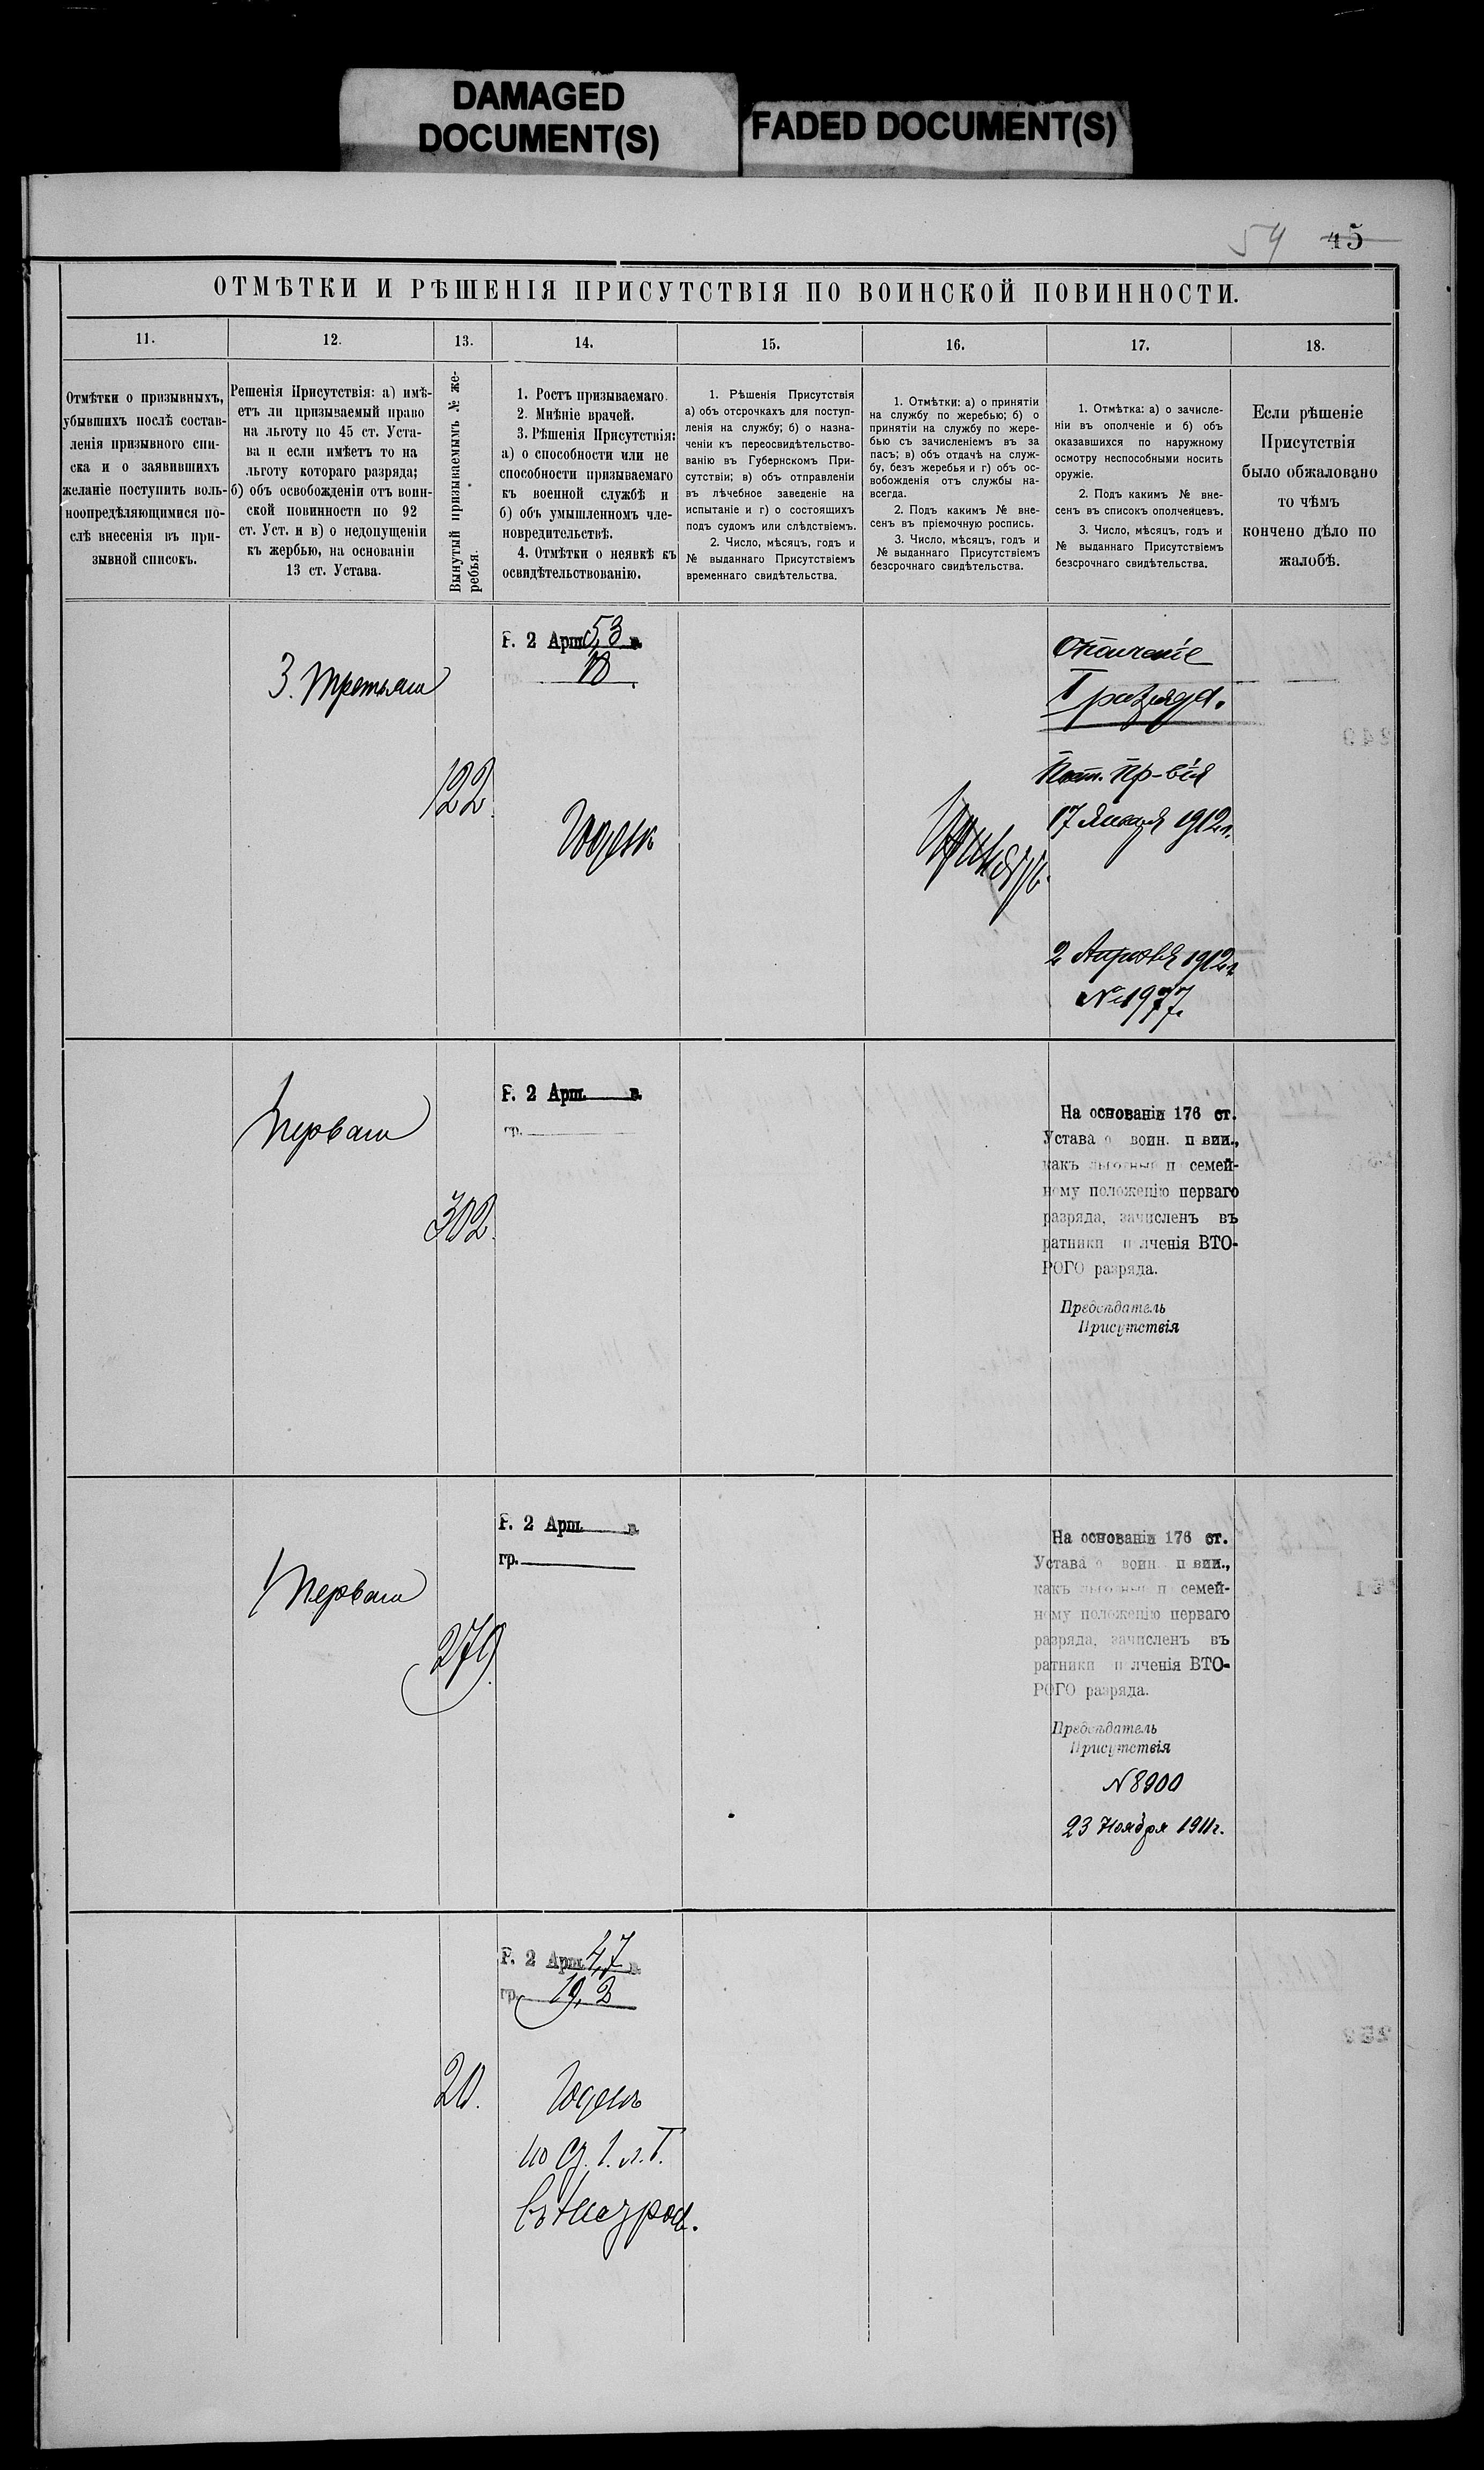 DAMAGED
DOCUMENT(S)
FADED DOCUMENT(S)
54 45
ОТМѢТКИ И РѢШЕНІЯ ПРИСУТСТВІЯ ПО ВОИНСКОЙ ПОВИННОСТИ.
11.
12.
13.
14.
15.
16.
17.
18.
Отмѣтки о призывныхъ,
убывшихъ послѣ состав-
ленія призывного спи-
ска и о заявившихъ
желаніе поступить воль-
ноопредѣляющимися по-
слѣ внесенія въ при-
зывной списокъ.
Решенія Присутствія: а) имѣ-
етъ ли призываемый право
на льготу по 45 ст. Уста-
ва и если имѣетъ то на
льготу котораго разряда;
б) объ освобожденіи отъ воин-
ской повинности по 92
ст. Уст. и в) о недопущеніи
къ жербью, на основаніи
13 ст. Устава.
Вынутый призываемымъ № же-
ребья.
1. Ростъ призываемаго.
2. Мнѣніе врачей.
3. Рѣшенія Присутствія:
а) о способности или не
способности призываемаго
къ военной службѣ и
б) объ умышленномъ чле-
новредительствѣ.
4. Отмѣтки о неявкѣ къ
освидѣтельствованію.
1. Рѣшенія Присутствія
а) объ отсрочкахъ для поступ-
ленія на службу; б) о назна-
ченіи къ переосвидѣтельство-
ванію въ Губернскомъ При-
сутствіи; в) объ отправленіи
въ лѣчебное заведеніе на
испытаніе и г) о состоящихъ
подъ судомъ или слѣдствіемъ.
2. Число, мѣсяцъ, годъ и
№ выданнаго Присутствіемъ
временнаго свидѣтельства.
1. Отмѣтки: а) о принятіи
на службу по жеребью; б) о
принятіи на службу по жере-
бью съ зачисленіемъ въ за
пасъ; в) объ отдачѣ на служ-
бу, безъ жеребья и г) объ ос-
вобожденія отъ службы на-
всегда.
2. Подъ какимъ № вне-
сенъ въ пріемочную роспись.
3. Число, мѣсяцъ, годъ и
№ выданнаго Присутствіемъ
безсрочнаго свидѣтельства.
1. Отмѣтка: а) о зачисле-
ніи въ ополченіе и б) объ
оказавшихся по наружному
осмотру неспособными носить
оружіе.
2. Подъ какимъ № вне-
сенъ въ списокъ ополчейцевъ.
3. Число, мѣсяцъ, годъ и
№ выданнаго Присутствіемъ
безсрочнаго свидѣтельства.
Если рѣшеніе
Присутствія
было обжаловано
то чѣмъ
кончено дѣло по
жалобѣ.
3. Третьяго
122
Р. 2 Арш. 5,3 в.
гр. 18
Годенъ
Принятъ.
Ополченіе
I разряда.
Пост. Пр-вія
17 Января 1912 г.
2 Апрѣля 1912 г.
№ 1977.
1 Перваго
302.
Р. 2 Арш. в.
гр.
На основаніи 176 ст.
Устава о воин. п вин.,
какъ льготный п семей-
ному положенію перваго
разряда, зачисленъ въ
ратники п лченія ВТО-
РОГО разряда.
Предсѣдатель
Присутствія
1 Перваго
279.
Р. 2 Арш. в.
гр.
На основаніи 176 ст.
Устава о воин. п вин.,
какъ льготный п семей-
ному положенію перваго
разряда, зачисленъ въ
ратники п лченія ВТО-
РОГО разряда.
Предсѣдатель
Присутствія
N 8900
23 Ноября 1911 г.
20.
Р. 2 Арш. 4,7 в.
гр. 19,2
Годенъ
по